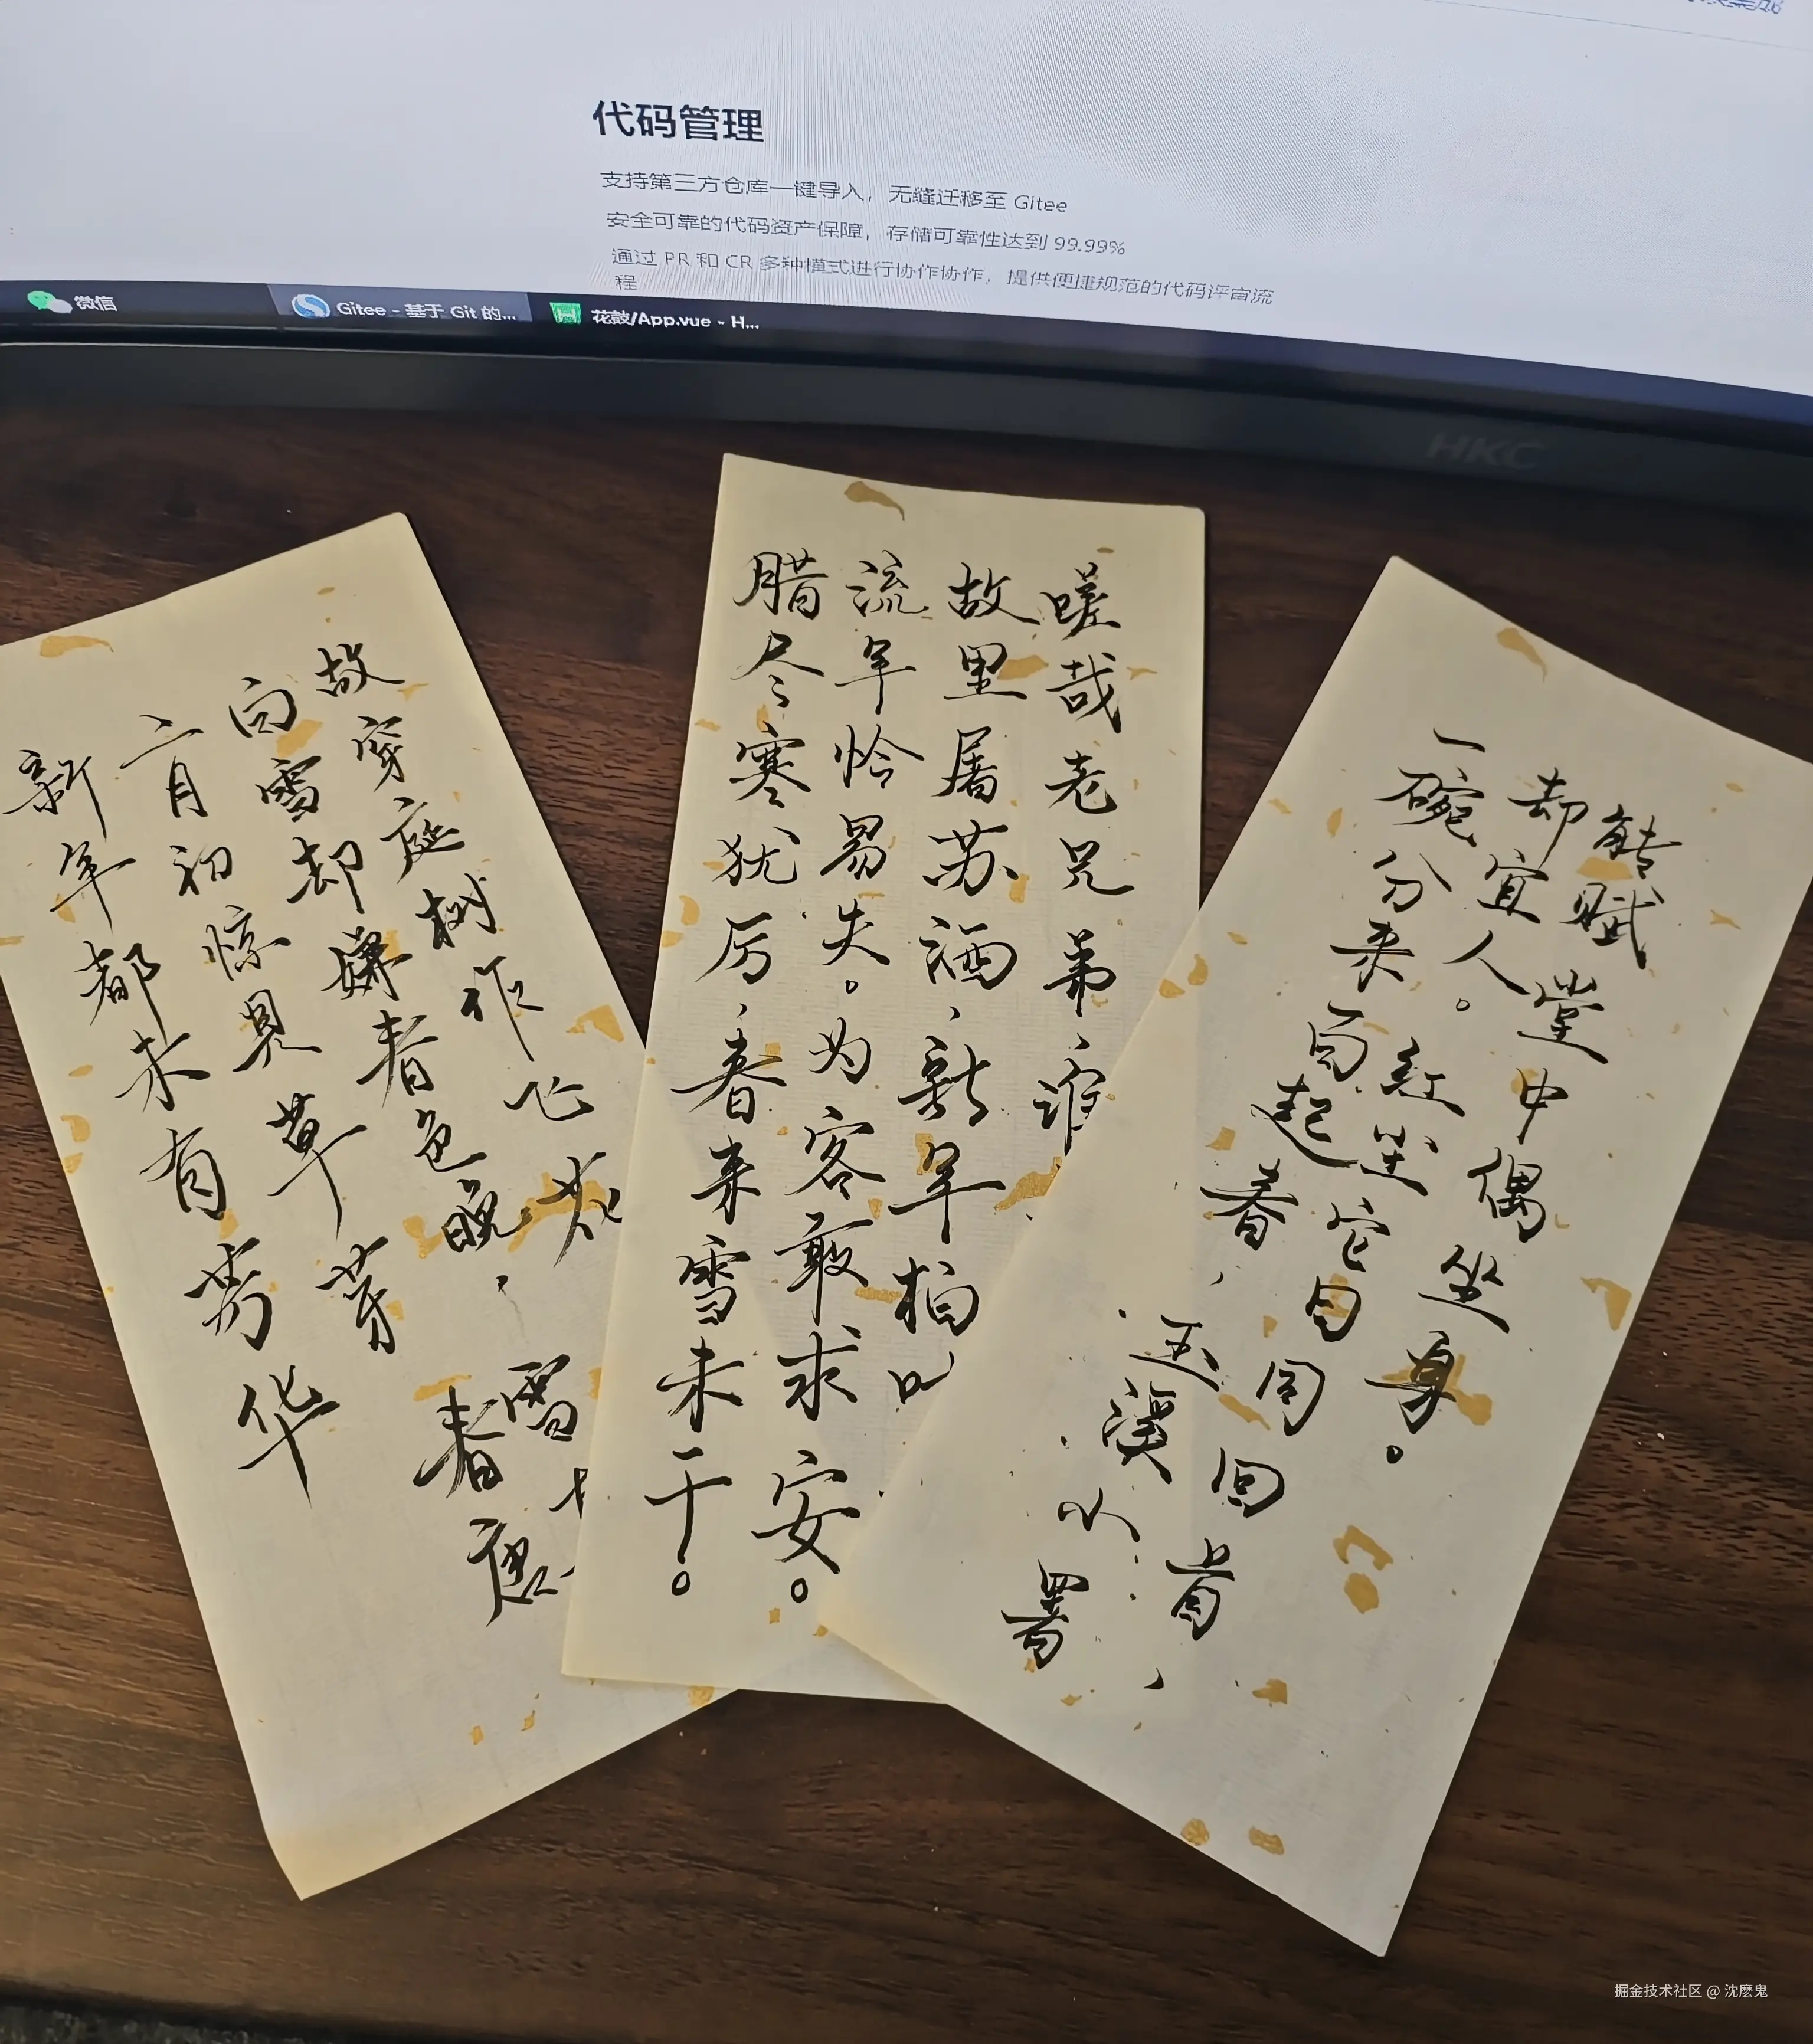 代码管理
支持第三方仓库一键导入，无缝迁移至 Gitee
安全可靠的代码资产保障，存储可靠性达到 99.99%
通过 PR 和 CR 多种模式进行协作协作，提供便捷规范的代码评审流
程
微信 Gitee - 基于 Git 的... 花鼓/App.vue - H...
HKC
新年都未有芳华
二月初惊见草芽
白雪却嫌春色晚，
故穿庭树作飞花
春雪
唐
腊尽寒犹厉，春来雪未干。
流年恰易失。为客敢求安。
故里屠苏酒、新年柏
嗟哉老兄弟、谁
一碗分来百起春，玉溪小署
却宜人。红尘它日同回首，
能赋堂中偶坐身。
掘金技术社区 @ 沈麽鬼